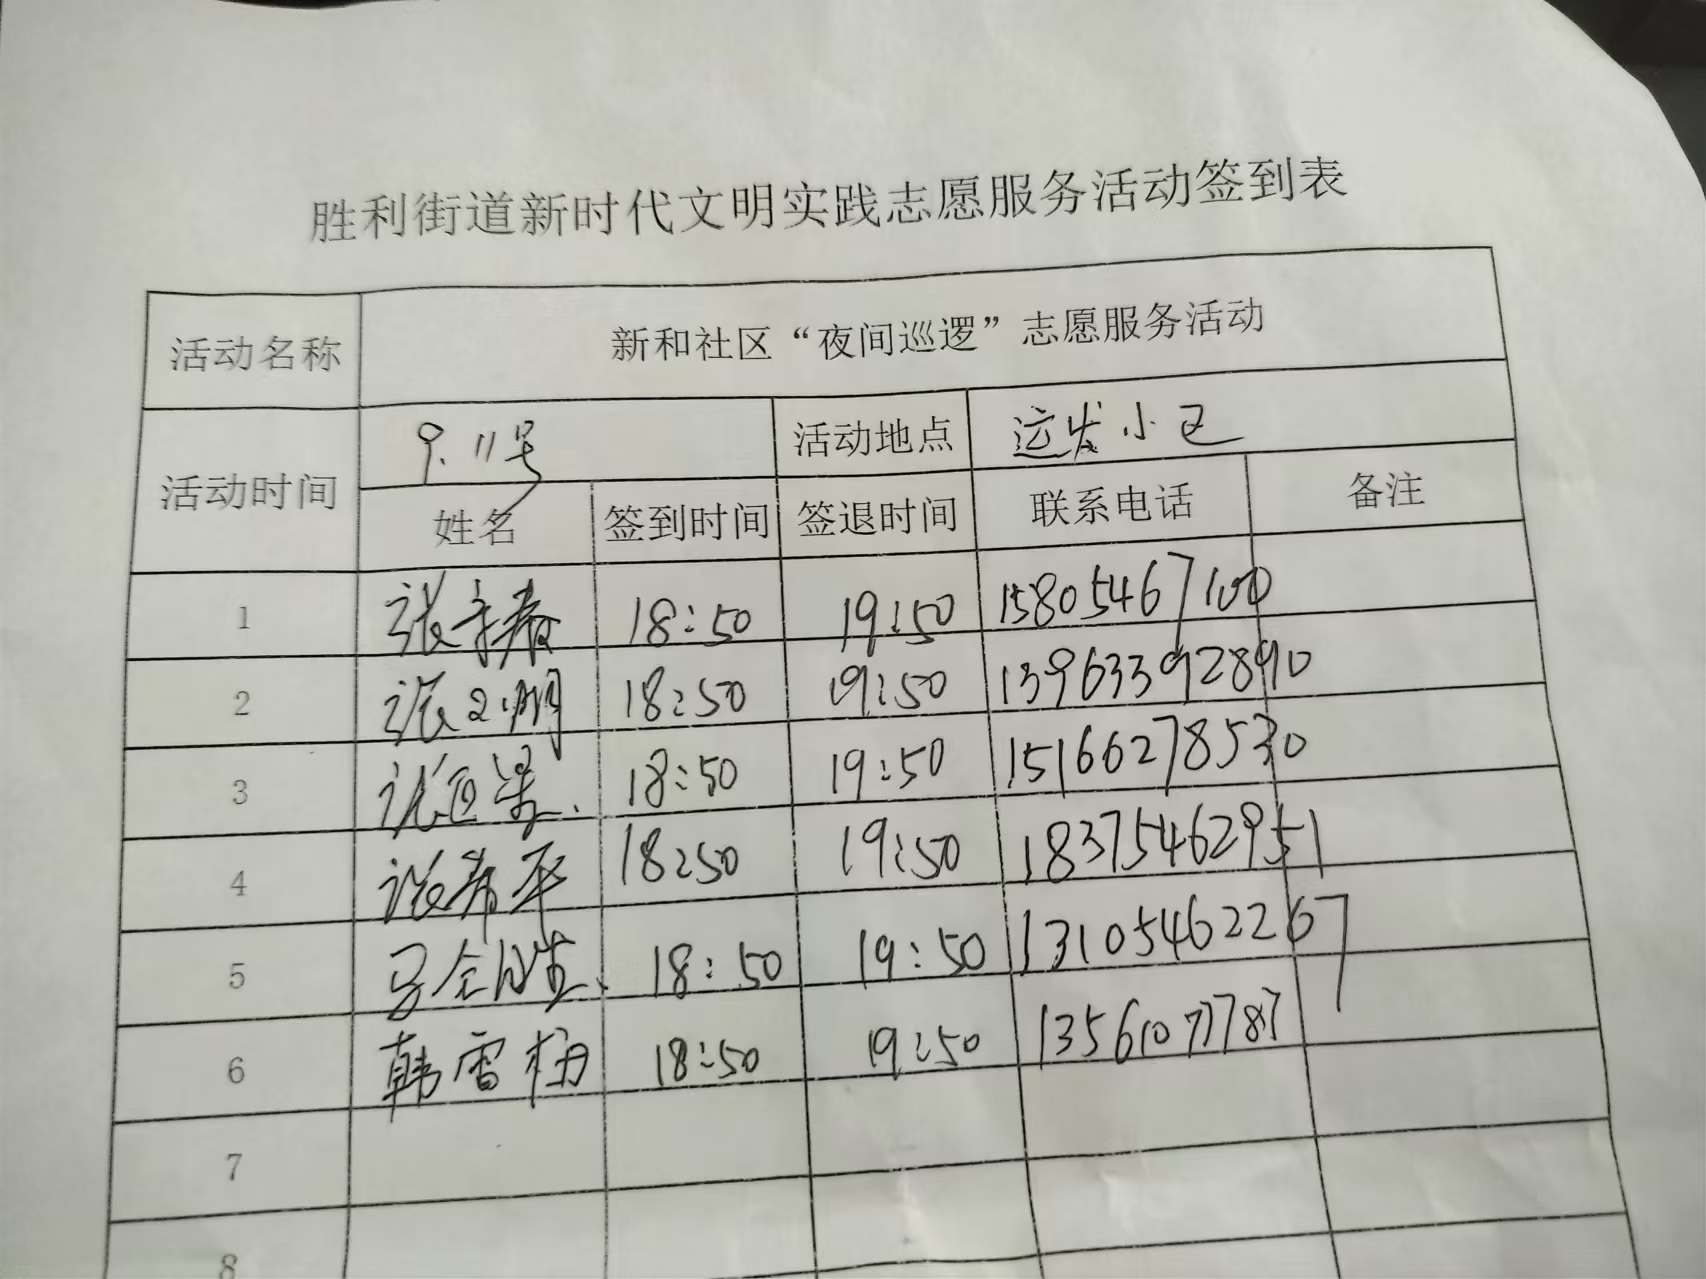 胜利街道新时代文明实践志愿服务活动签到表
活动名称 新和社区“夜间巡逻”志愿服务活动
活动时间 9.11号 活动地点 运发小区
姓名 签到时间 签退时间 联系电话 备注
1 张 18:50 19:50 15805467100
2 张 明 18:50 19:50 13963392890
3 张 18:50 19:50 15166278530
4 张希平 18:50 19:50 18375462951
5 马 18:50 19:50 13105462267
6 韩雷梅 18:50 19:50
7
8